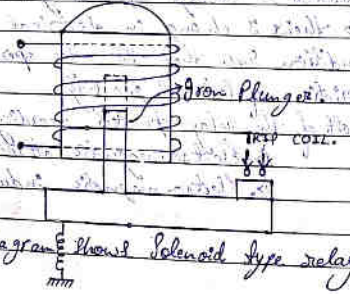 Iron Plunger.
TRIP COIL.
agram shows Solenoid type relay